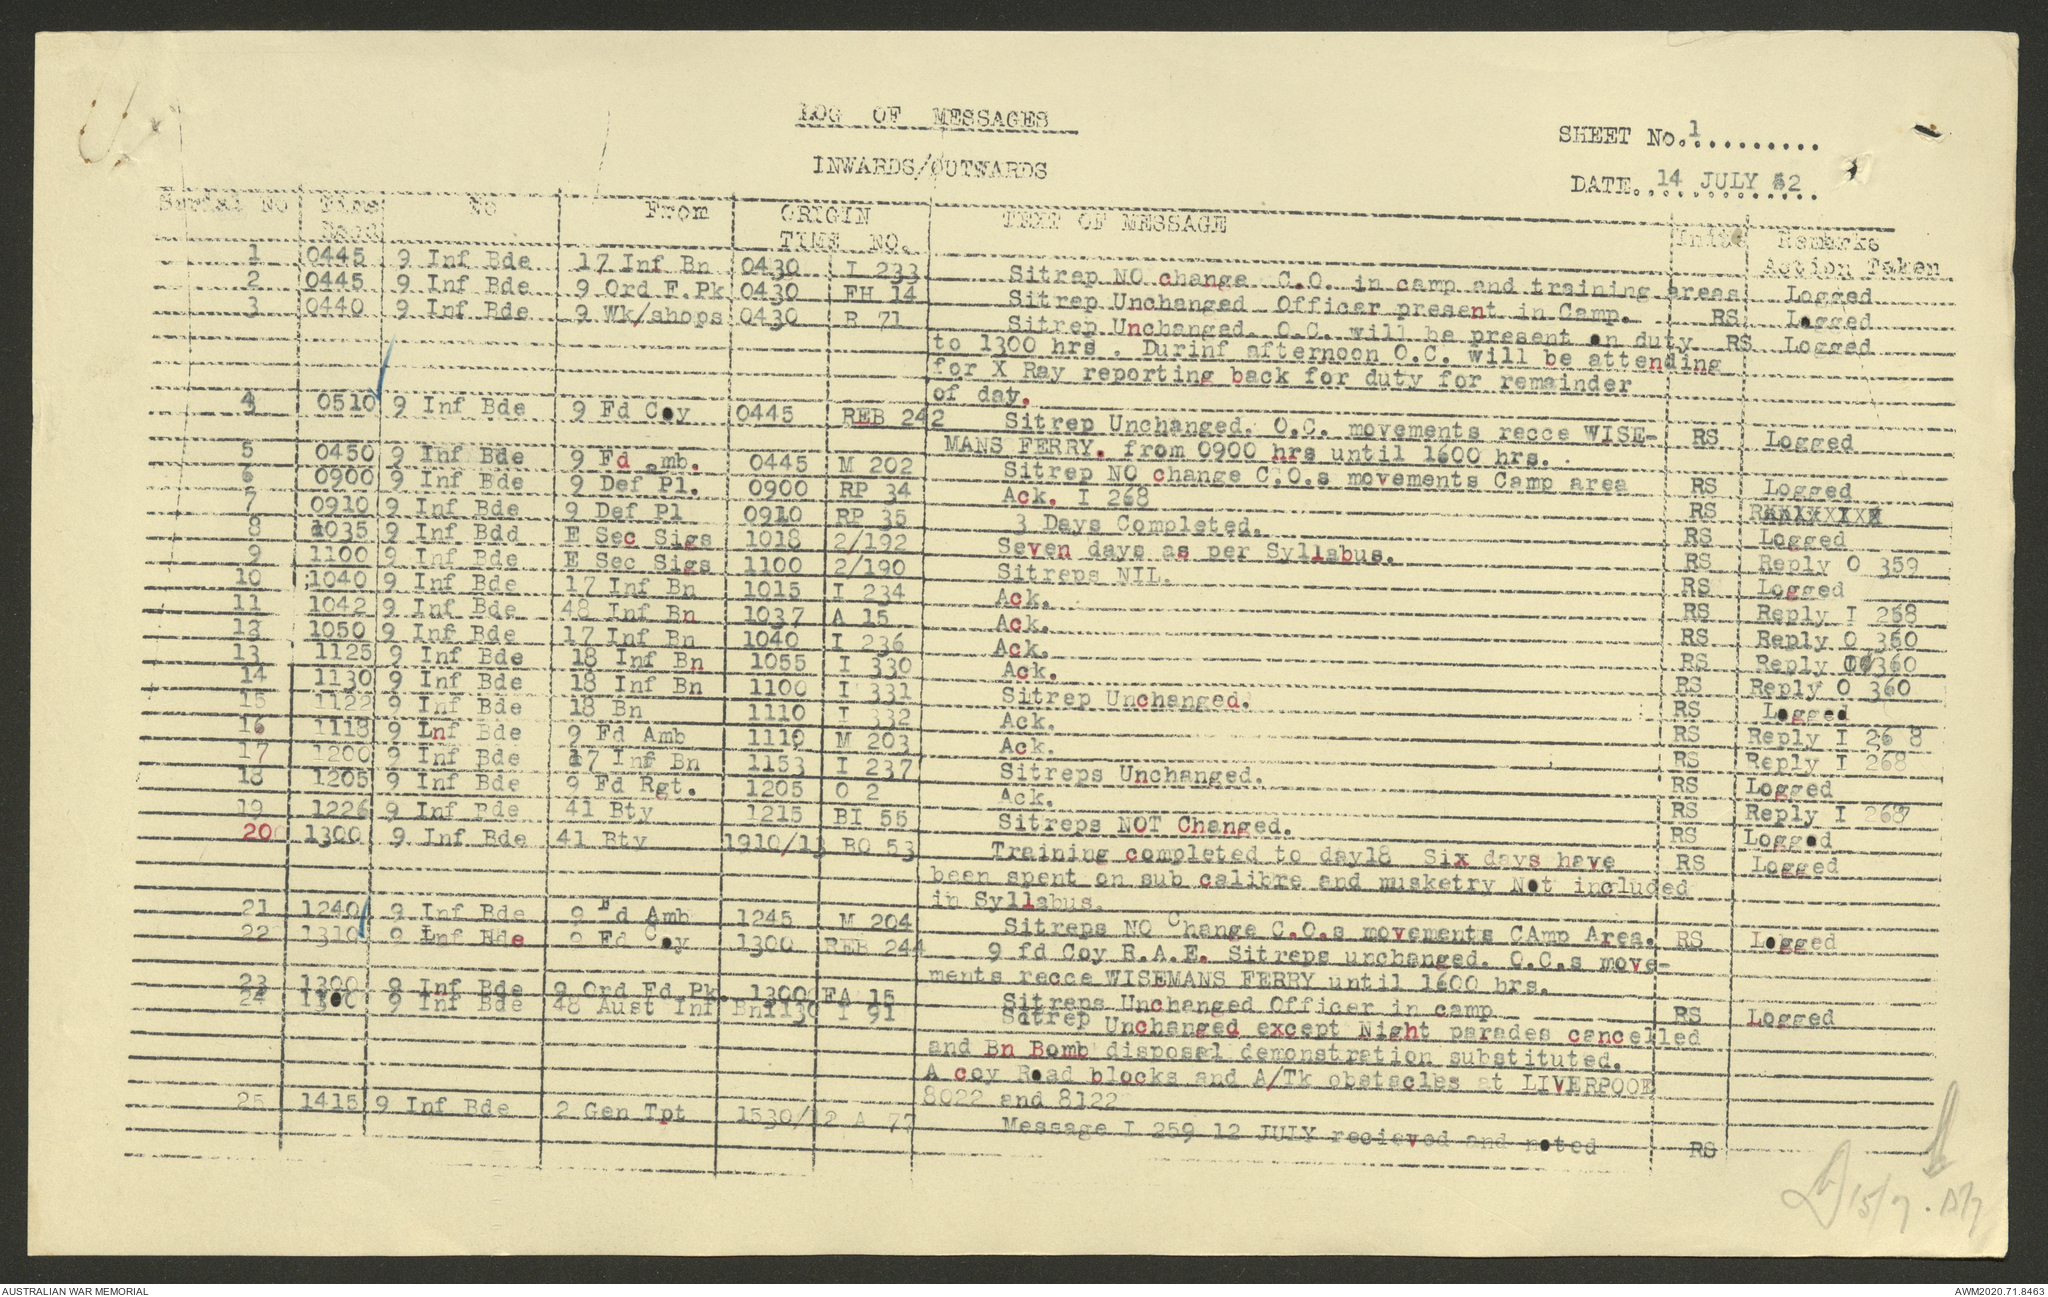 LOG OF MESSAGES
INWARDS/OUTWARDS
SHEET No. 1..........
DATE. 14 JULY 42.
Serial No Time Recd To From ORIGIN TIME NO. TEXT OF MESSAGE Init Remarks Action Taken
1 0445 9 Inf Bde 17 Inf Bn 0430 I 233 Sitrep NO change C.O. in camp and training areas Logged
2 0445 9 Inf Bde 9 Ord F.Pk 0430 FH 14 Sitrep Unchanged Officer present in Camp. RS Logged
3 0440 9 Inf Bde 9 Wk/shops 0430 R 71 Sitrep Unchanged. O.C. will be present on duty RS Logged
to 1300 hrs . Durinf afternoon O.C. will be attending
for X Ray reporting back for duty for remainder
of day.
4 0510 9 Inf Bde 9 Fd Coy 0445 REB 242 Sitrep Unchanged. O.C. movements recce WISE- RS Logged
MANS FERRY. from 0900 hrs until 1600 hrs.
5 0450 9 Inf Bde 9 Fd amb. 0445 M 202 Sitrep NO change C.O.s movements Camp area RS Logged
6 0900 9 Inf Bde 9 Def Pl. 0900 RP 34 Ack. I 268 RS
7 0910 9 Inf Bde 9 Def Pl 0910 RP 35 3 Days Completed. RS Logged
8 1035 9 Inf Bdd E Sec Sigs 1018 2/192 Seven days as per Syllabus. RS Reply O 359
9 1100 9 Inf Bde E Sec Sigs 1100 2/190 Sitreps NIL. RS Logged
10 1040 9 Inf Bde 17 Inf Bn 1015 I 234 Ack. RS Reply I 268
11 1042 9 Inf Bde 48 Inf Bn 1037 A 15 Ack. RS Reply O 360
12 1050 9 Inf Bde 17 Inf Bn 1040 I 236 Ack. RS Reply O 360
13 1125 9 Inf Bde 18 Inf Bn 1055 I 330 Ack. RS Reply O 360
14 1130 9 Inf Bde 18 Inf Bn 1100 I 331 Sitrep Unchanged. RS Logged
15 1122 9 Inf Bde 18 Bn 1110 I 332 Ack. RS Reply I 26 8
16 1118 9 Lnf Bde 9 Fd Amb 1110 M 203 Ack. RS Reply I 268
17 1200 9 Inf Bde 17 Inf Bn 1153 I 237 Sitreps Unchanged. RS Logged
18 1205 9 Inf Bde 9 Fd Rgt. 1205 O 2 Ack. RS Reply I 268
19 1226 9 Inf Bde 41 Bty 1215 BI 55 Sitreps NOT Changed. RS Logged
20 1300 9 Inf Bde 41 Bty 1910/13 BO 53 Training completed to day18 Six days have RS Logged
been spent on sub calibre and musketry Not included
in Syllabus.
21 1240 9 Inf Bde 9 Fd Amb 1245 M 204 Sitreps NO Change C.O.s movements CAmp Area. RS Logged
22 1310 9 Inf Bde 9 Fd Coy 1300 REB 244 9 fd Coy R.A.E. Sitreps unchanged. O.C.s move-
ments recce WISEMANS FERRY until 1600 hrs.
23 1300 9 Inf Bde 9 Ord Fd Pk. 1300 FA 15 Sitreps Unchanged Officer in camp RS Logged
24 1300 9 Inf Bde 48 Aust Inf Bn 1130 I 91 Sitrep Unchanged except Night parades cancelled
and Bn Bomb disposal demonstration substituted.
A coy Road blocks and A/Tk obstacles at LIVERPOOL
8022 and 8122
25 1415 9 Inf Bde 2 Gen Tpt 1530/12 A 77 Message I 259 12 JULY recieved and noted RS
15/7.
AUSTRALIAN WAR MEMORIAL
AWM2020.71.8463